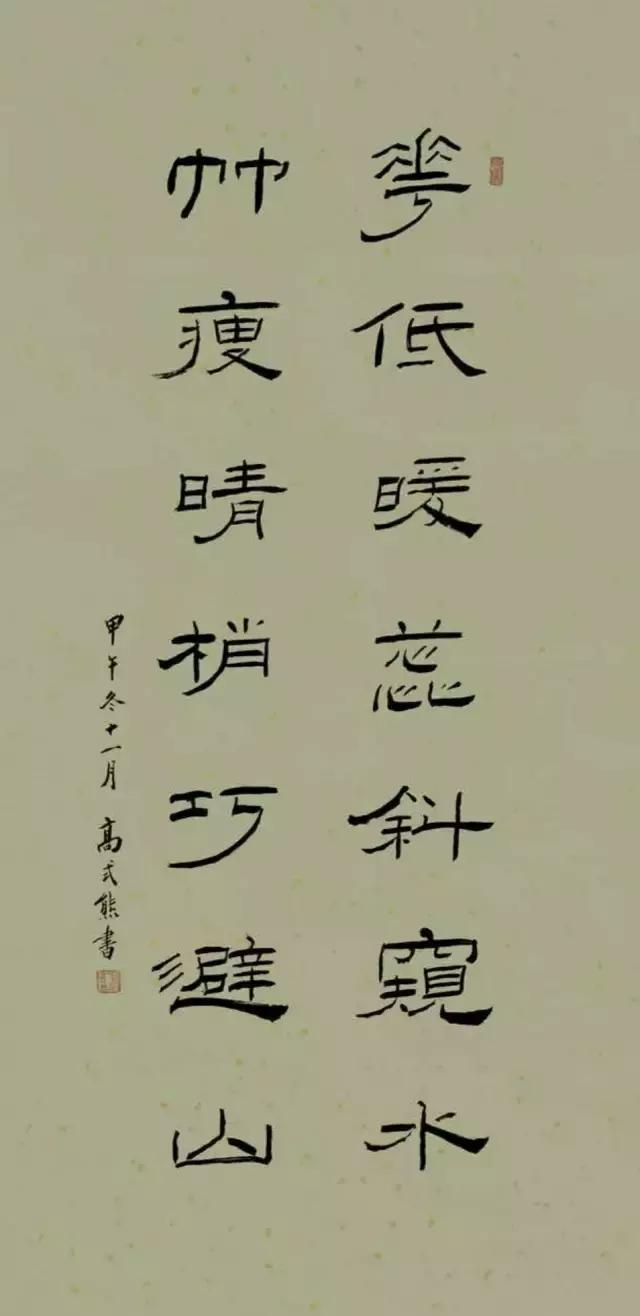 華低暖蕊斜窺水
竹瘦晴梢巧避山
甲午冬十一月 高式熊書